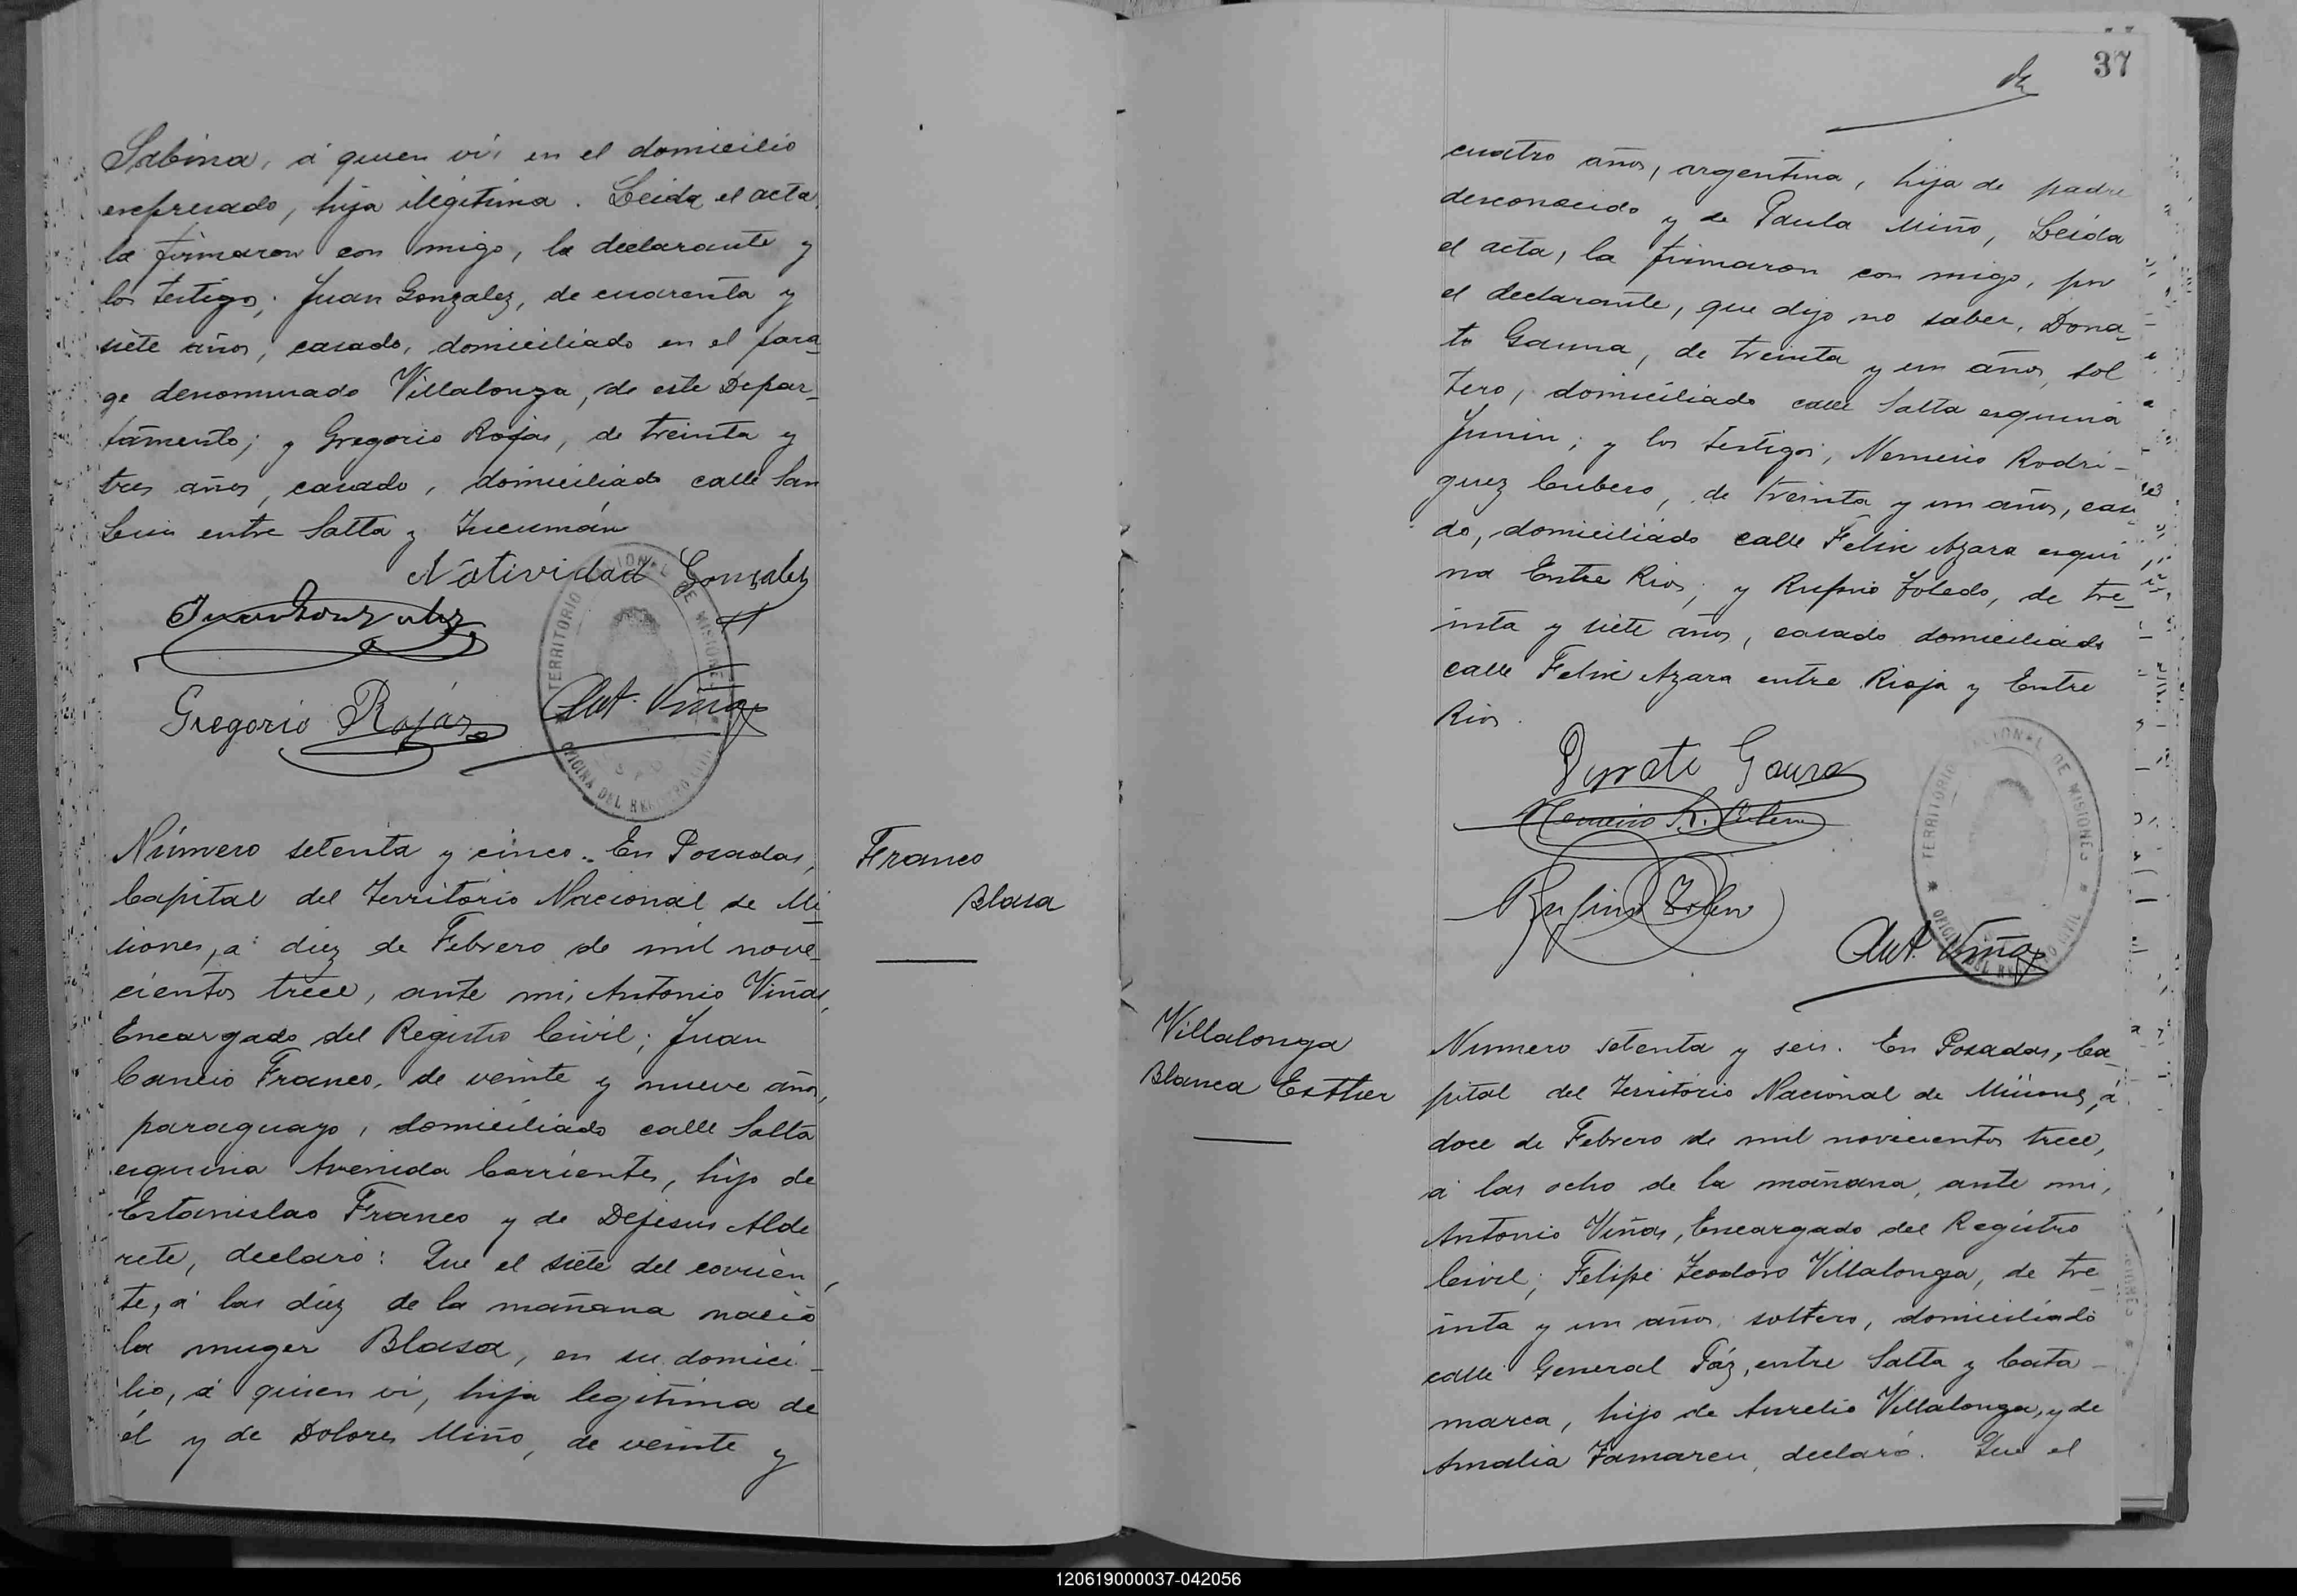 Sabina, á quien ví, en el domicilio
expresado, hija ilegítima. Leida el acta,
la firmaron con migo, la declarante y
los testigos; Juan Gonzalez, de cuarenta y
siete años, casado, domiciliado en el para-
ge denominado Villalonga, de este Depar-
tamento; y Gregorio Rojas, de treinta y
tres años, casado, domiciliado calle San
Luis entre Salta y Tucumán
Natividad Gonzalez
Juan Gonzalez
Gregorio Rojas
Ant. Viñas
TERRITORIO NACIONAL DE MISIONES
OFICINA DEL REGISTRO CIVIL
Número setenta y cinco. En Posadas,
Capital del Territorio Nacional de Mi-
siones, á diez de Febrero de mil nove-
cientos trece, ante mi, Antonio Viñas,
Encargado del Registro Civil; Juan
Cancio Franco, de veinte y nueve años,
paraguayo, domiciliado calle Salta
esquina Avenida Corrientes, hijo de
Estanislao Franco y de Dejesus Alde
rete, declaró: Que el siete del corrien
te, á las diez de la mañana nació
la muger Blasa, en su domici-
lio, á quien vi, hija legítima de
él y de Dolores Miño, de veinte y
Franco
Blasa
37
cuatro años, argentina, hija de padre
desconocido y de Paula Miño, Leida
el acta, la firmaron con migo, por
el declarante, que dijo no saber, Dona-
to Gauna, de treinta y un años, sol
tero, domiciliado calle Salta esquina
Junin; y los testigos, Nemesio Rodri-
guez Cubero, de treinta y un años, casa
do, domiciliado calle Felix Azara esqui
na Entre Rios; y Rufino Toledo, de tre-
inta y siete años, casado domiciliado
calle Felix Azara entre Rioja y Entre
Rios.
Donato Gauna
Nemesio R. Cubero
Rufino Toledo
Ant. Viñas
TERRITORIO NACIONAL DE MISIONES
OFICINA DEL REGISTRO CIVIL
Villalonga
Blanca Esther
Numero setenta y seis. En Posadas, Ca-
pital del Territorio Nacional de Misiones, á
doce de Febrero de mil novecientos trece,
á las ocho de la mañana, ante mi,
Antonio Viñas, Encargado del Registro
Civil; Felipe Teodoro Villalonga, de tre-
inta y un años, soltero, domiciliado
calle General Páz, entre Salta y Cata-
marca, hijo de Aurelio Villalonga, y de
Amalia Tamareu, declaró. Que el
120619000037-042056